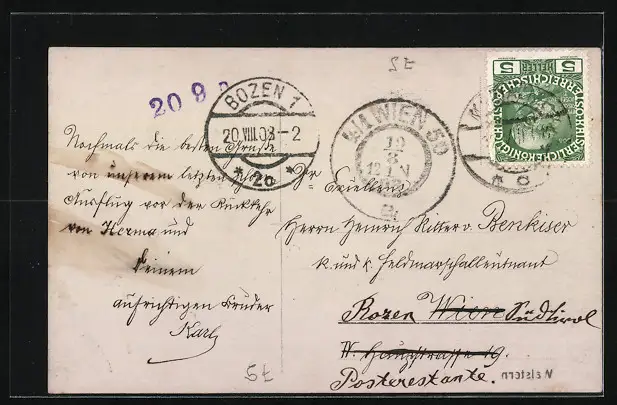 20 9
BOZEN 1
20.VIII.08-2
* 2b *
4/1 WIEN 50
5
HELLER
Nochmals die besten Grüße
von unserem letzten
Ausflug vor der Rückkehr
von Herma und
Deinem
aufrichtigen Bruder
Karl
Sr. Exellenz
Herrn Heinrich Ritter v. Benkiser
k. und k. Feldmarschalleutnant
Bozen Wien Südtirol
IV. Hauptstrasse 19.
Posterestante.
57